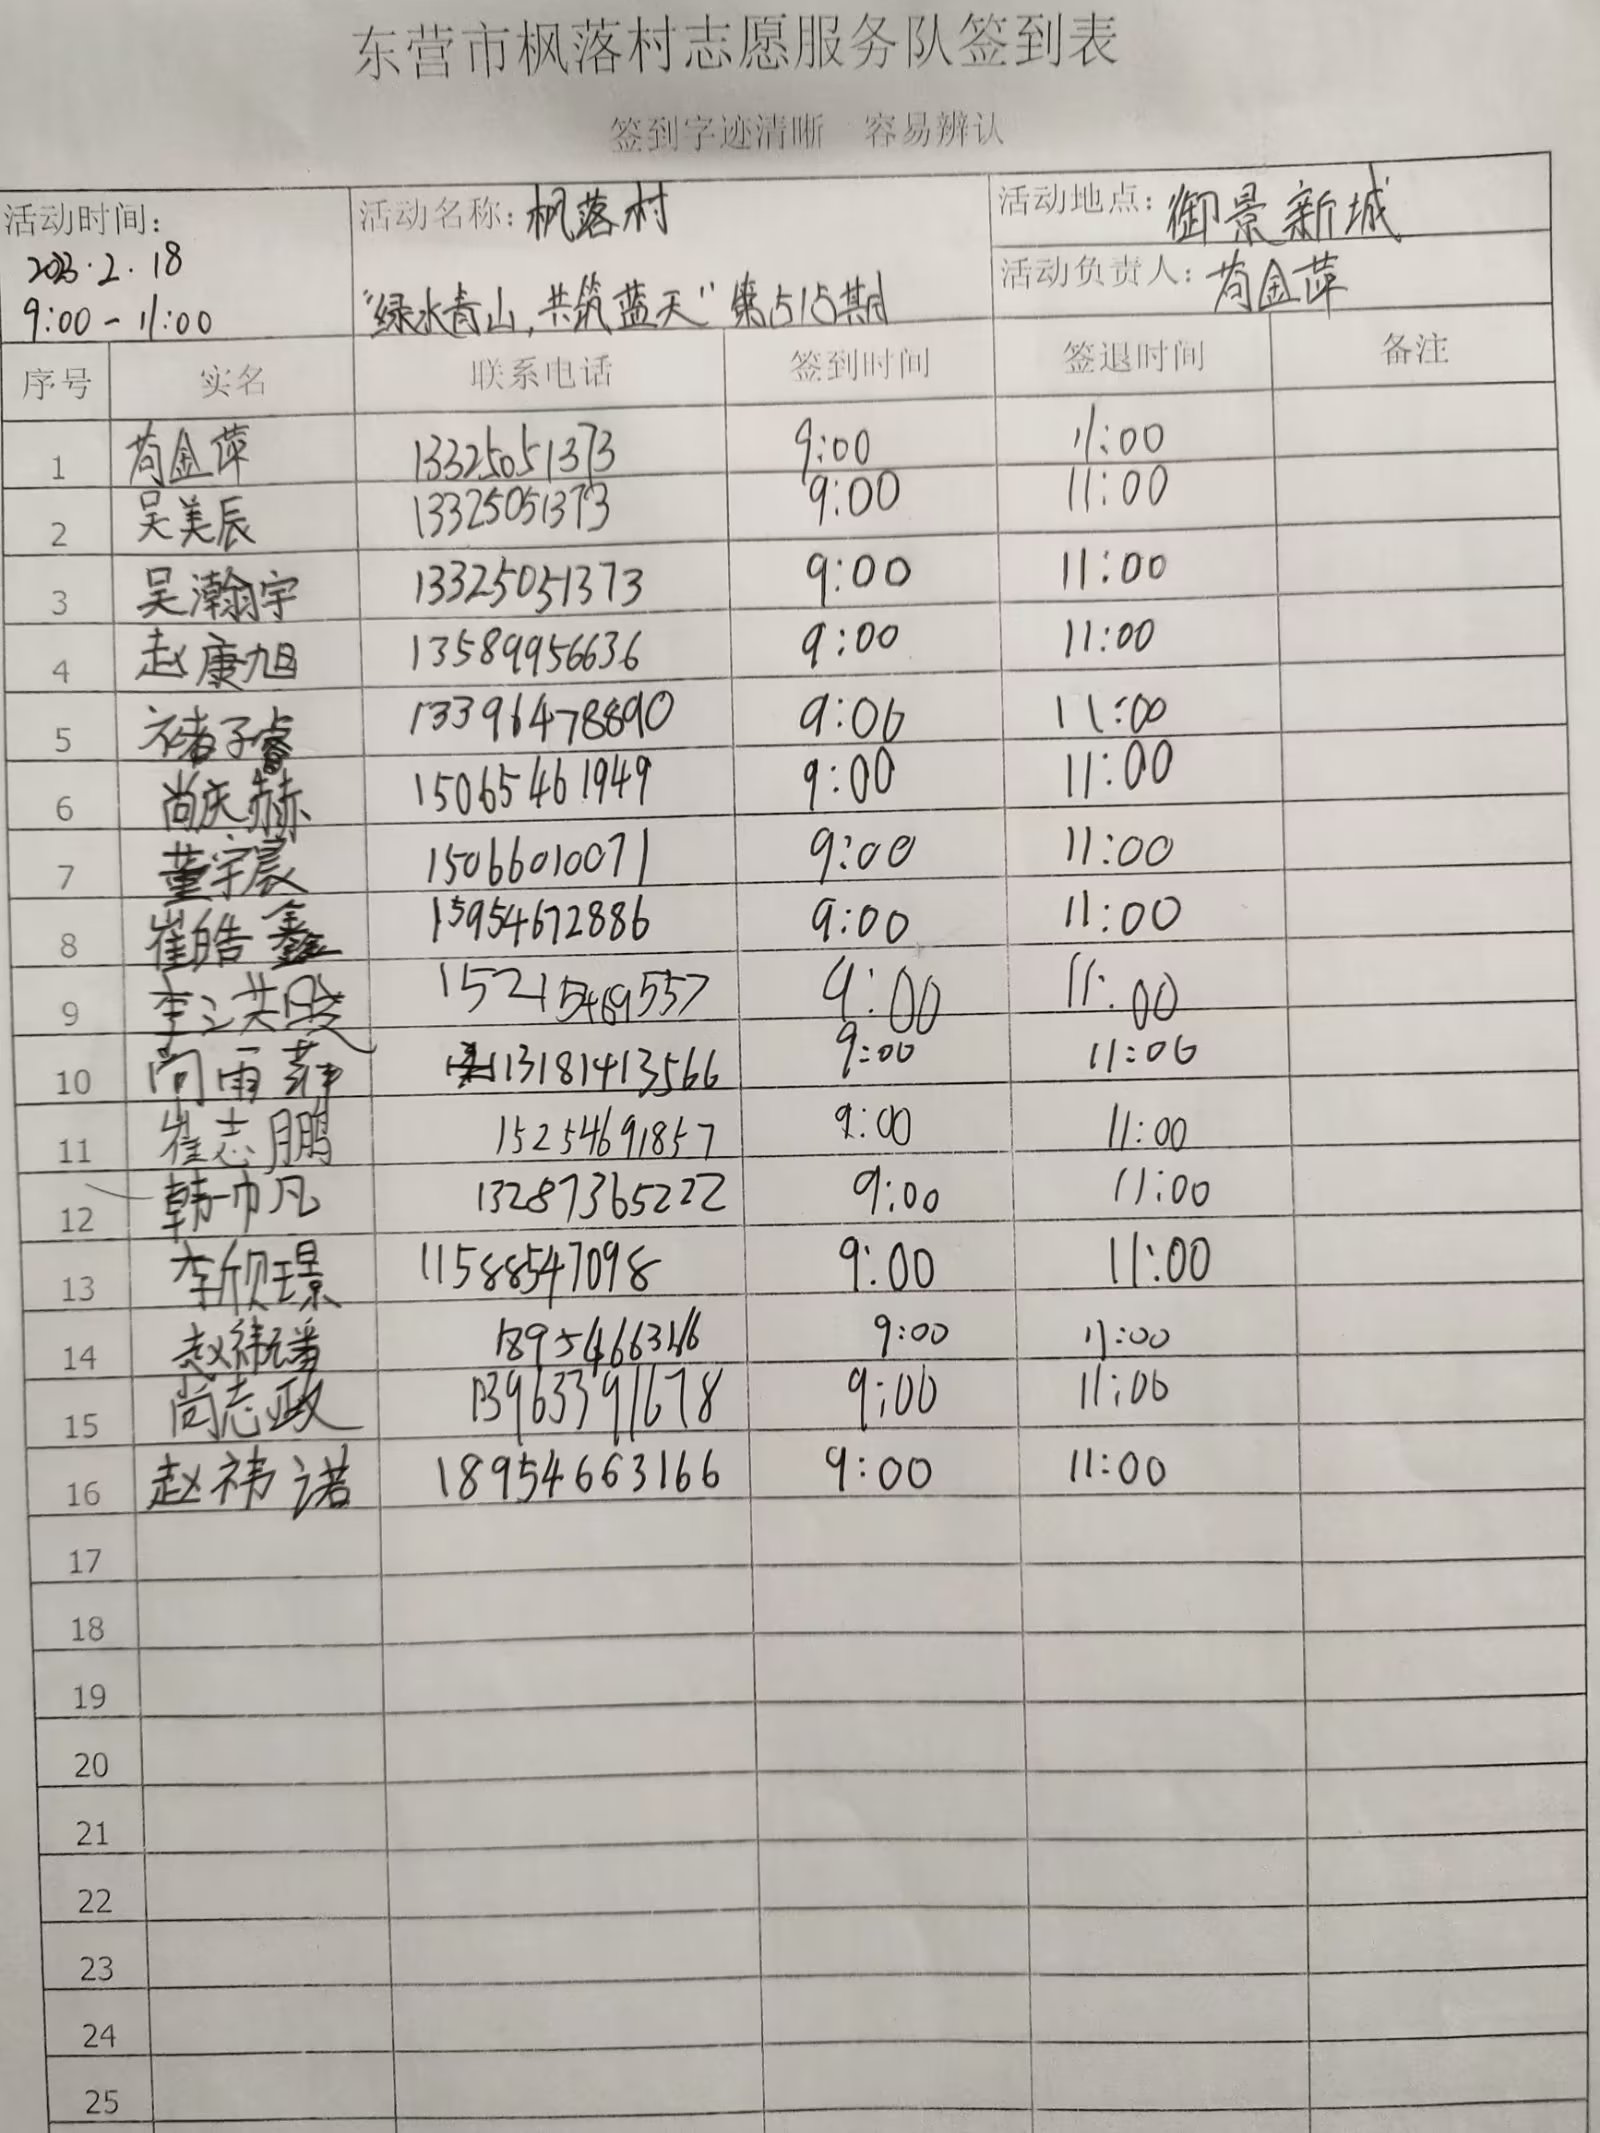 东营市枫落村志愿服务队签到表
签到字迹清晰 容易辨认
活动时间: 2023.2.18 9:00-11:00
活动名称: 枫落村 "绿水青山,共筑蓝天"第515期
活动地点: 御景新城
活动负责人: 荀金萍
序号 实名 联系电话 签到时间 签退时间 备注
1 荀金萍 13325051373 9:00 11:00
2 吴美辰 13325051373 9:00 11:00
3 吴瀚宇 13325051373 9:00 11:00
4 赵康旭 13589956636 9:00 11:00
5 褚子睿 13396478890 9:00 11:00
6 尚庆赫 15065461949 9:00 11:00
7 董宇宸 15066010071 9:00 11:00
8 崔皓鑫 15954672886 9:00 11:00
9 15215469557 9:00 11:00
10 13181413566 9:00 11:00
11 崔志鹏 15254691857 9:00 11:00
12 韩一帆 13287365222 9:00 11:00
13 李欣璟 11588547098 9:00 11:00
14 赵祎璠 18954663166 9:00 11:00
15 尚志政 13963391678 9:00 11:00
16 赵祎诺 18954663166 9:00 11:00
17
18
19
20
21
22
23
24
25